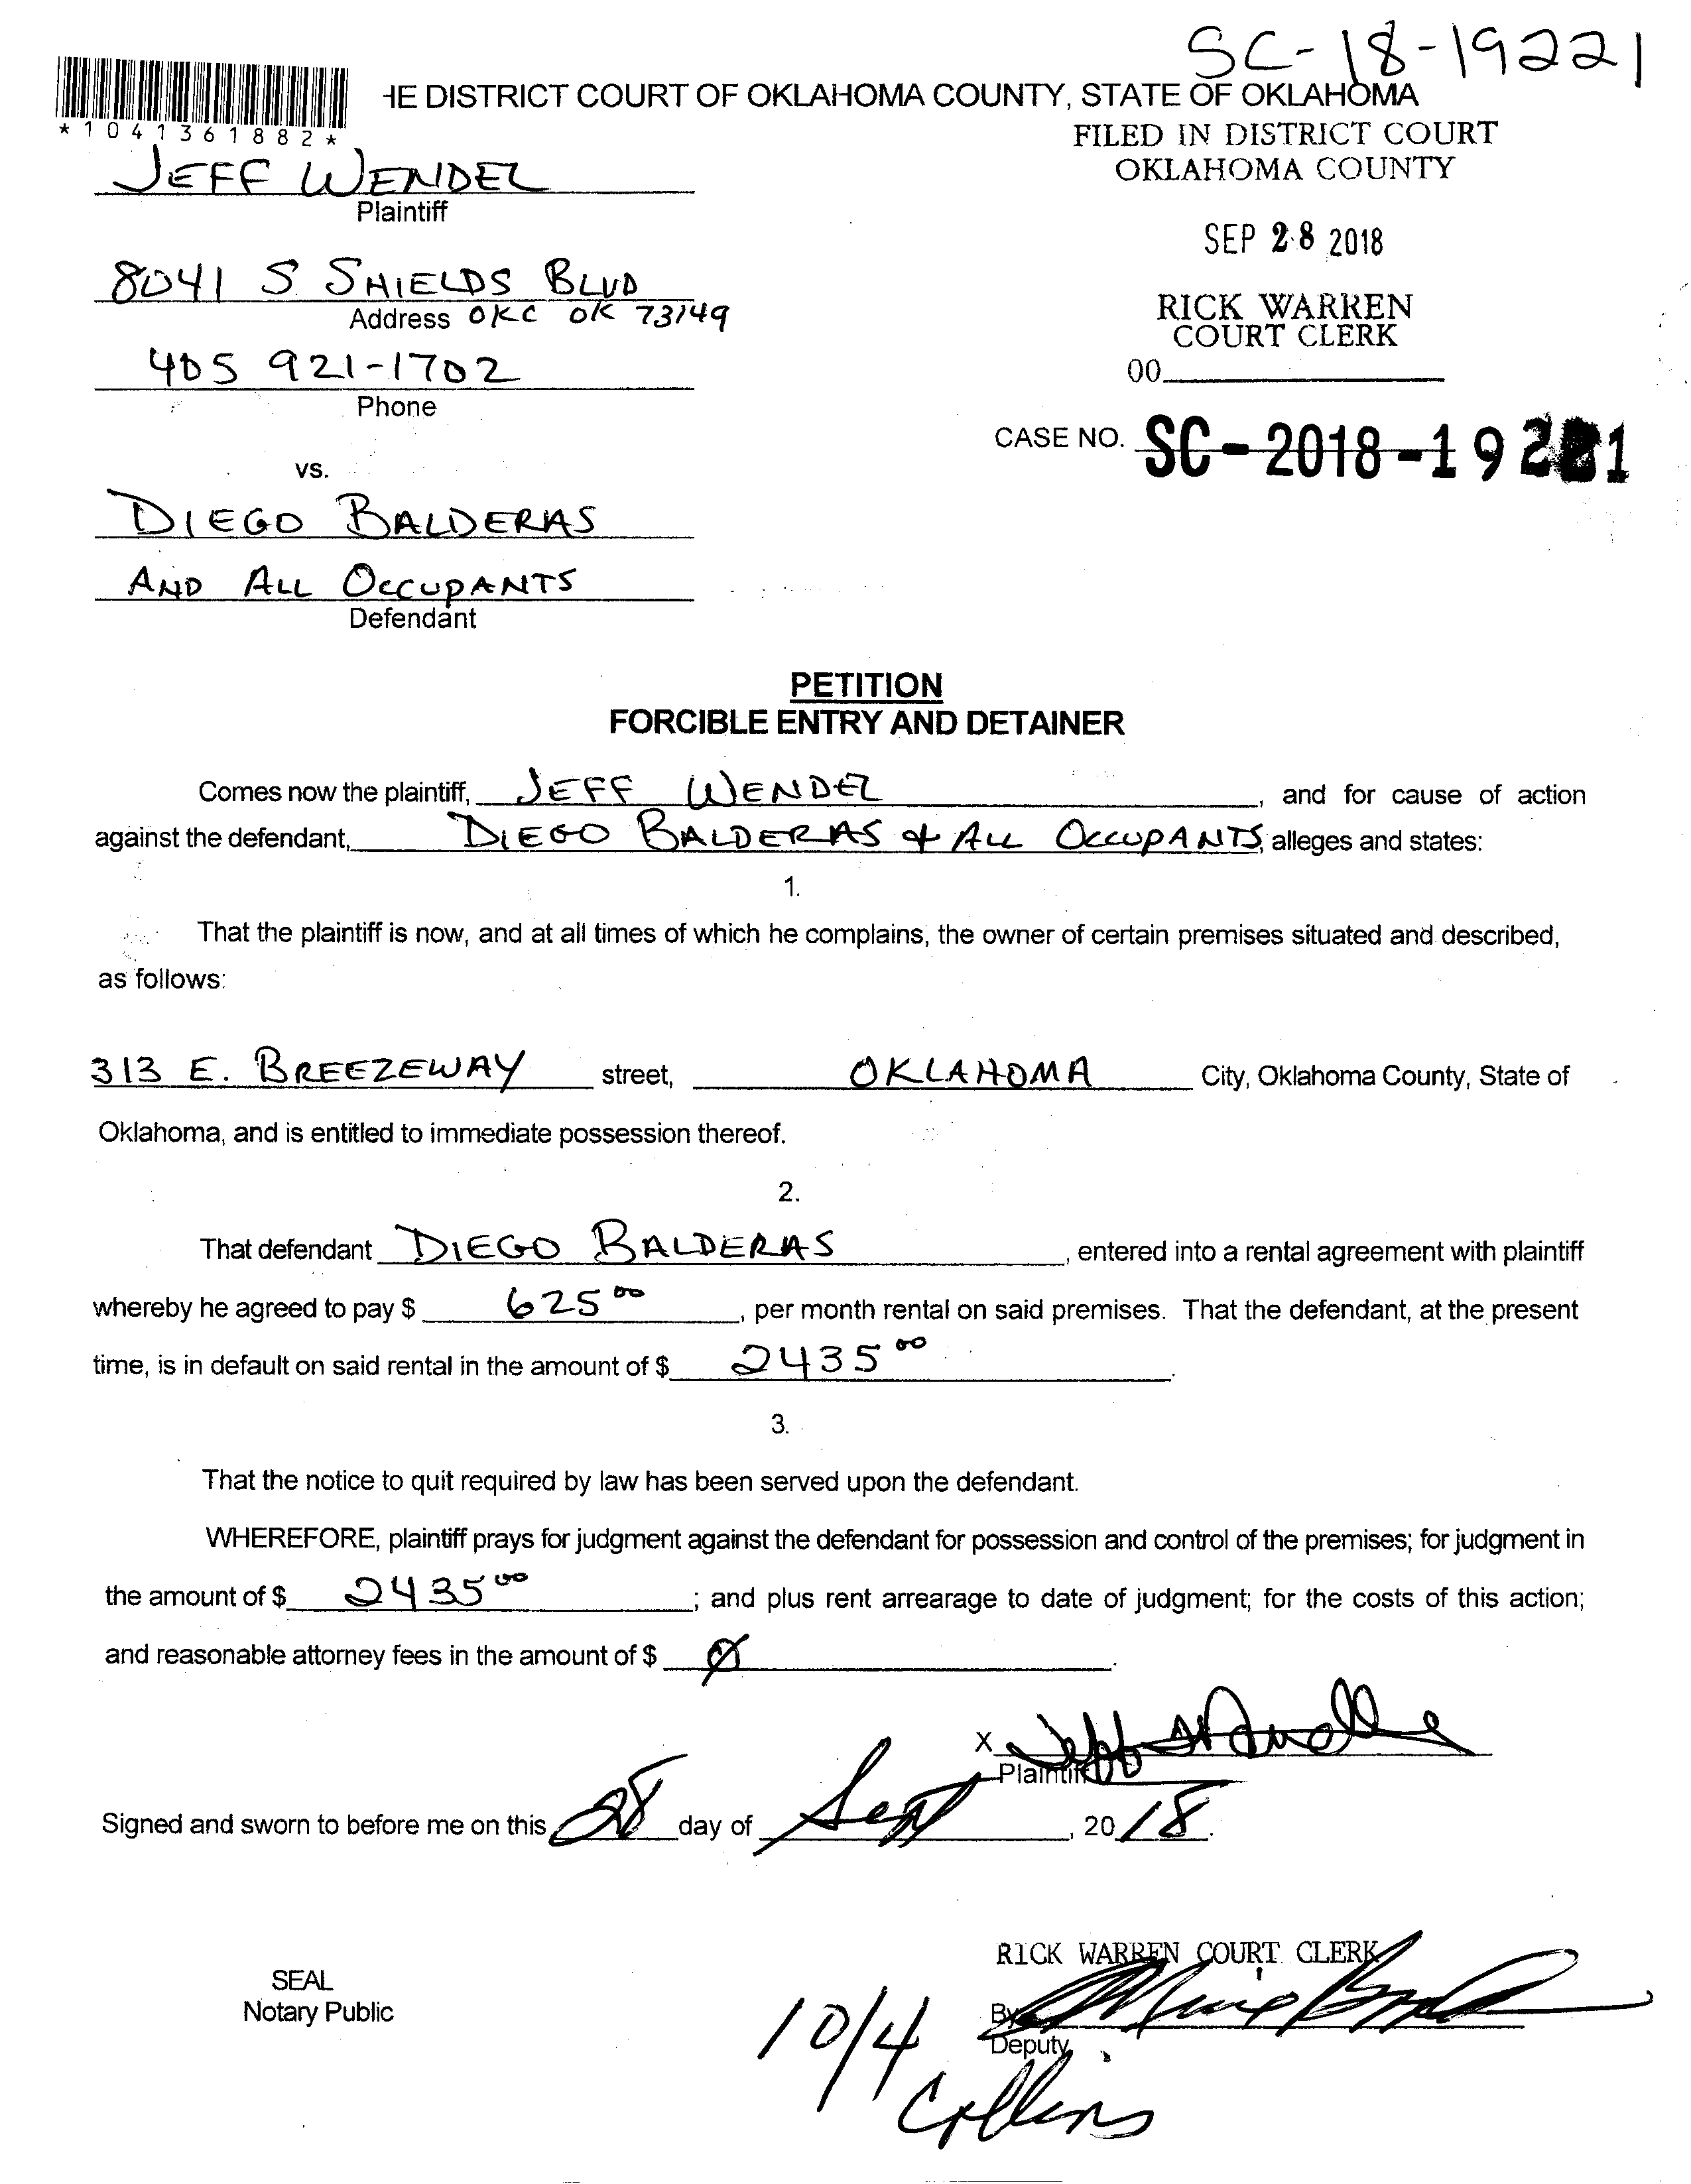 SC-18-19221
HE DISTRICT COURT OF OKLAHOMA COUNTY, STATE OF OKLAHOMA
*1041361882*
FILED IN DISTRICT COURT
OKLAHOMA COUNTY
JEFF WENDEL
Plaintiff
SEP 28 2018
8041 S. SHIELDS BLVD
Address OKC OK 73149
RICK WARREN
COURT CLERK
405 921-1702
00
Phone
CASE NO. SC-2018-19221
vs.
DIEGO BALDERAS
AND ALL OCCUPANTS
Defendant
PETITION
FORCIBLE ENTRY AND DETAINER
Comes now the plaintiff, JEFF WENDEL, and for cause of action
against the defendant, DIEGO BALDERAS & ALL OCCUPANTS, alleges and states:
1.
That the plaintiff is now, and at all times of which he complains, the owner of certain premises situated and described,
as follows:
313 E. BREEZEWAY street, OKLAHOMA City, Oklahoma County, State of
Oklahoma, and is entitled to immediate possession thereof.
2.
That defendant DIEGO BALDERAS, entered into a rental agreement with plaintiff
whereby he agreed to pay $ 625 00, per month rental on said premises. That the defendant, at the present
time, is in default on said rental in the amount of $ 2435 00.
3.
That the notice to quit required by law has been served upon the defendant.
WHEREFORE, plaintiff prays for judgment against the defendant for possession and control of the premises; for judgment in
the amount of $ 2435 00; and plus rent arrearage to date of judgment; for the costs of this action;
and reasonable attorney fees in the amount of $ Ø.
X
Plaintiff
Signed and sworn to before me on this 28 day of Sept, 2018.
RICK WARREN COURT CLERK
SEAL
Notary Public
By
Deputy
10/4
Collins